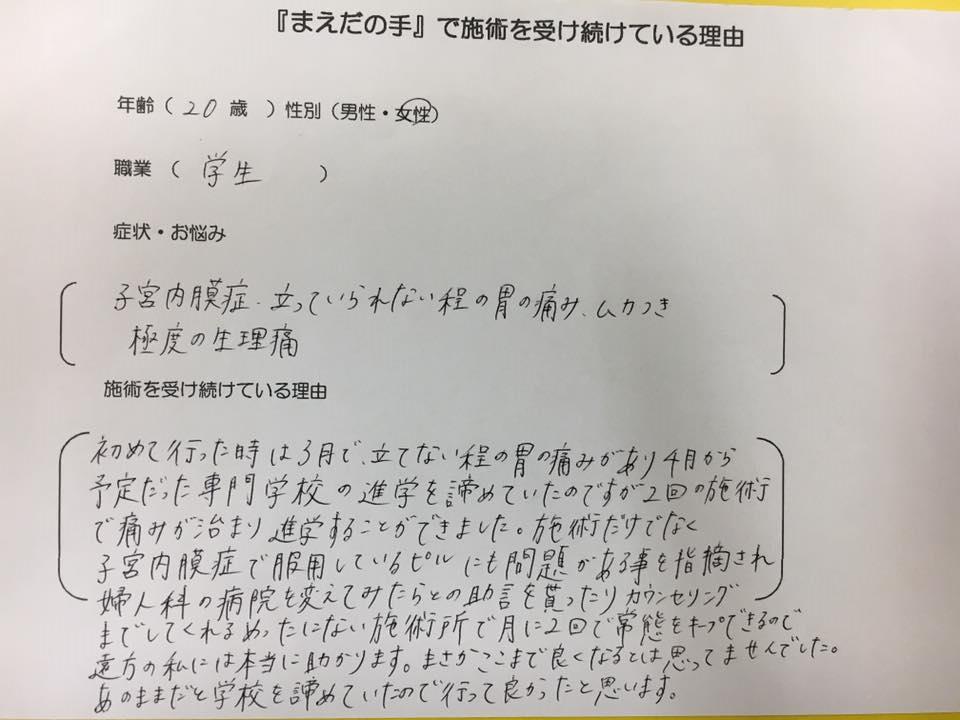 『まえだの手』で施術を受け続けている理由
年齢（20 歳 ）性別（男性・女性）
職業 （ 学生 ）
症状・お悩み
子宮内膜症、立っていられない程の胃の痛み、ムカつき
極度の生理痛
施術を受け続けている理由
初めて行った時は3月で、立てない程の胃の痛みがあり4月から
予定だった専門学校の進学を諦めていたのですが2回の施術
で痛みが治まり進学することができました。施術だけでなく
子宮内膜症で服用しているピルにも問題がある事を指摘され
婦人科の病院を変えてみたらとの助言を貰ったりカウンセリング
までしてくれるめったにない施術所で月に2回で常態をキープできるので
遠方の私には本当に助かります。まさかここまで良くなるとは思ってませんでした。
あのままだと学校を諦めていたので行って良かったと思います。